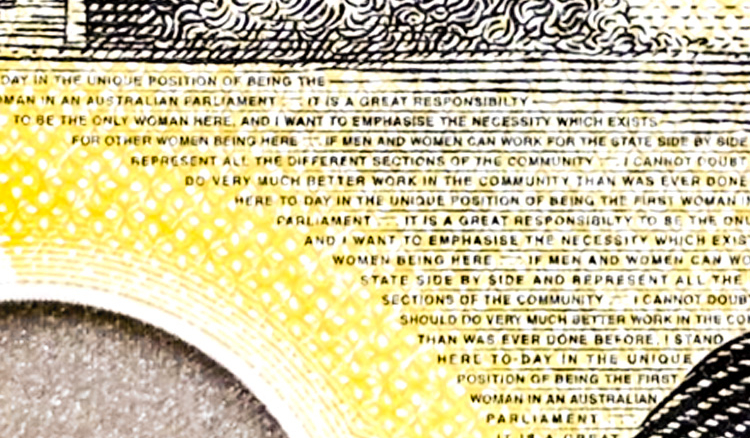 DAY IN THE UNIQUE POSITION OF BEING THE
MAN IN AN AUSTRALIAN PARLIAMENT ... IT IS A GREAT RESPONSIBILTY
TO BE THE ONLY WOMAN HERE, AND I WANT TO EMPHASISE THE NECESSITY WHICH EXISTS
FOR OTHER WOMEN BEING HERE ... IF MEN AND WOMEN CAN WORK FOR THE STATE SIDE BY SIDE
REPRESENT ALL THE DIFFERENT SECTIONS OF THE COMMUNITY ... I CANNOT DOUBT
DO VERY MUCH BETTER WORK IN THE COMMUNITY THAN WAS EVER DONE
HERE TO DAY IN THE UNIQUE POSITION OF BEING THE FIRST WOMAN I
PARLIAMENT ... IT IS A GREAT RESPONSIBILTY TO BE THE ONL
AND I WANT TO EMPHASISE THE NECESSITY WHICH EXIS
WOMEN BEING HERE ... IF MEN AND WOMEN CAN WO
STATE SIDE BY SIDE AND REPRESENT ALL THE
SECTIONS OF THE COMMUNITY ... I CANNOT DOUB
SHOULD DO VERY MUCH BETTER WORK IN THE CO
THAN WAS EVER DONE BEFORE. I STAND
HERE TO-DAY IN THE UNIQUE
POSITION OF BEING THE FIRST
WOMAN IN AN AUSTRALIAN
PARLIAMENT
IT IS A GREAT